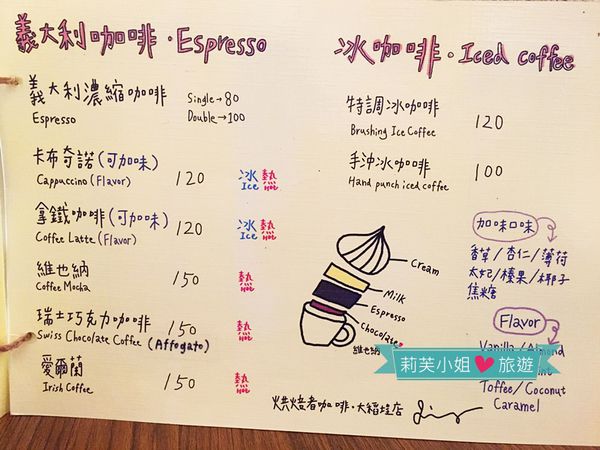 義大利咖啡·Espresso
義大利濃縮咖啡 Single→80
Espresso Double→100
卡布奇諾(可加味)
Cappuccino(Flavor) 120 冰 熱
Ice Hot
拿鐵咖啡(可加味)
Coffee Latte(Flavor) 120 冰 熱
Ice Hot
維也納
Coffee Mocha 150 熱
Hot
瑞士巧克力咖啡
Swiss Chocolate Coffee (Affogato) 150 熱
Hot
愛爾蘭
Irish Coffee 150 熱
Hot
冰咖啡·Iced coffee
特調冰咖啡
Brushing Ice Coffee 120
手沖冰咖啡
Hand punch iced coffee 100
加味口味
香草/杏仁/薄荷
太妃/榛果/椰子
焦糖
Flavor
Vanilla/Almond
Toffee/Coconut
Caramel
Cream
Milk
Espresso
Chocolate
維也納
烘焙者咖啡·大稻埕店
莉芙小姐 旅遊